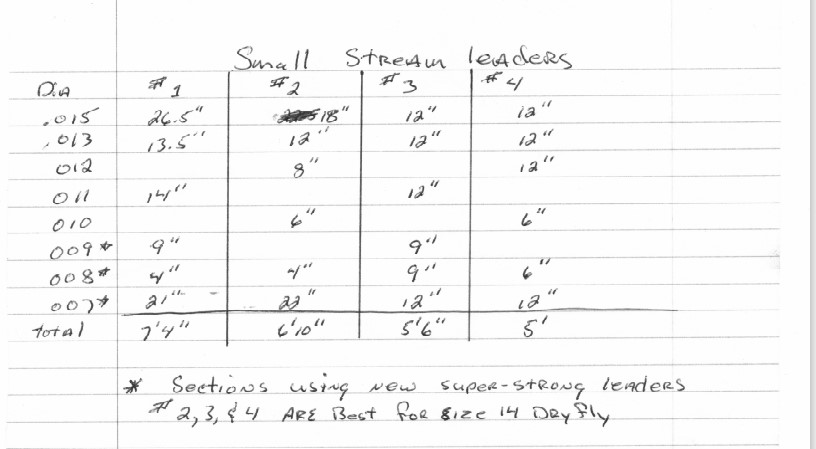 Small Stream leaders
Dia #1 #2 #3 #4
.015 26.5" 18" 12" 12"
.013 13.5" 12" 12" 12"
012 8" 12"
011 14" 12"
010 6" 6"
009* 9" 9"
008* 4" 4" 9" 6"
007* 21" 22" 12" 12"
total 7'4" 6'10" 5'6" 5'
* Sections using new super-strong leaders
# 2, 3, & 4 ARE Best for size 14 Dry fly